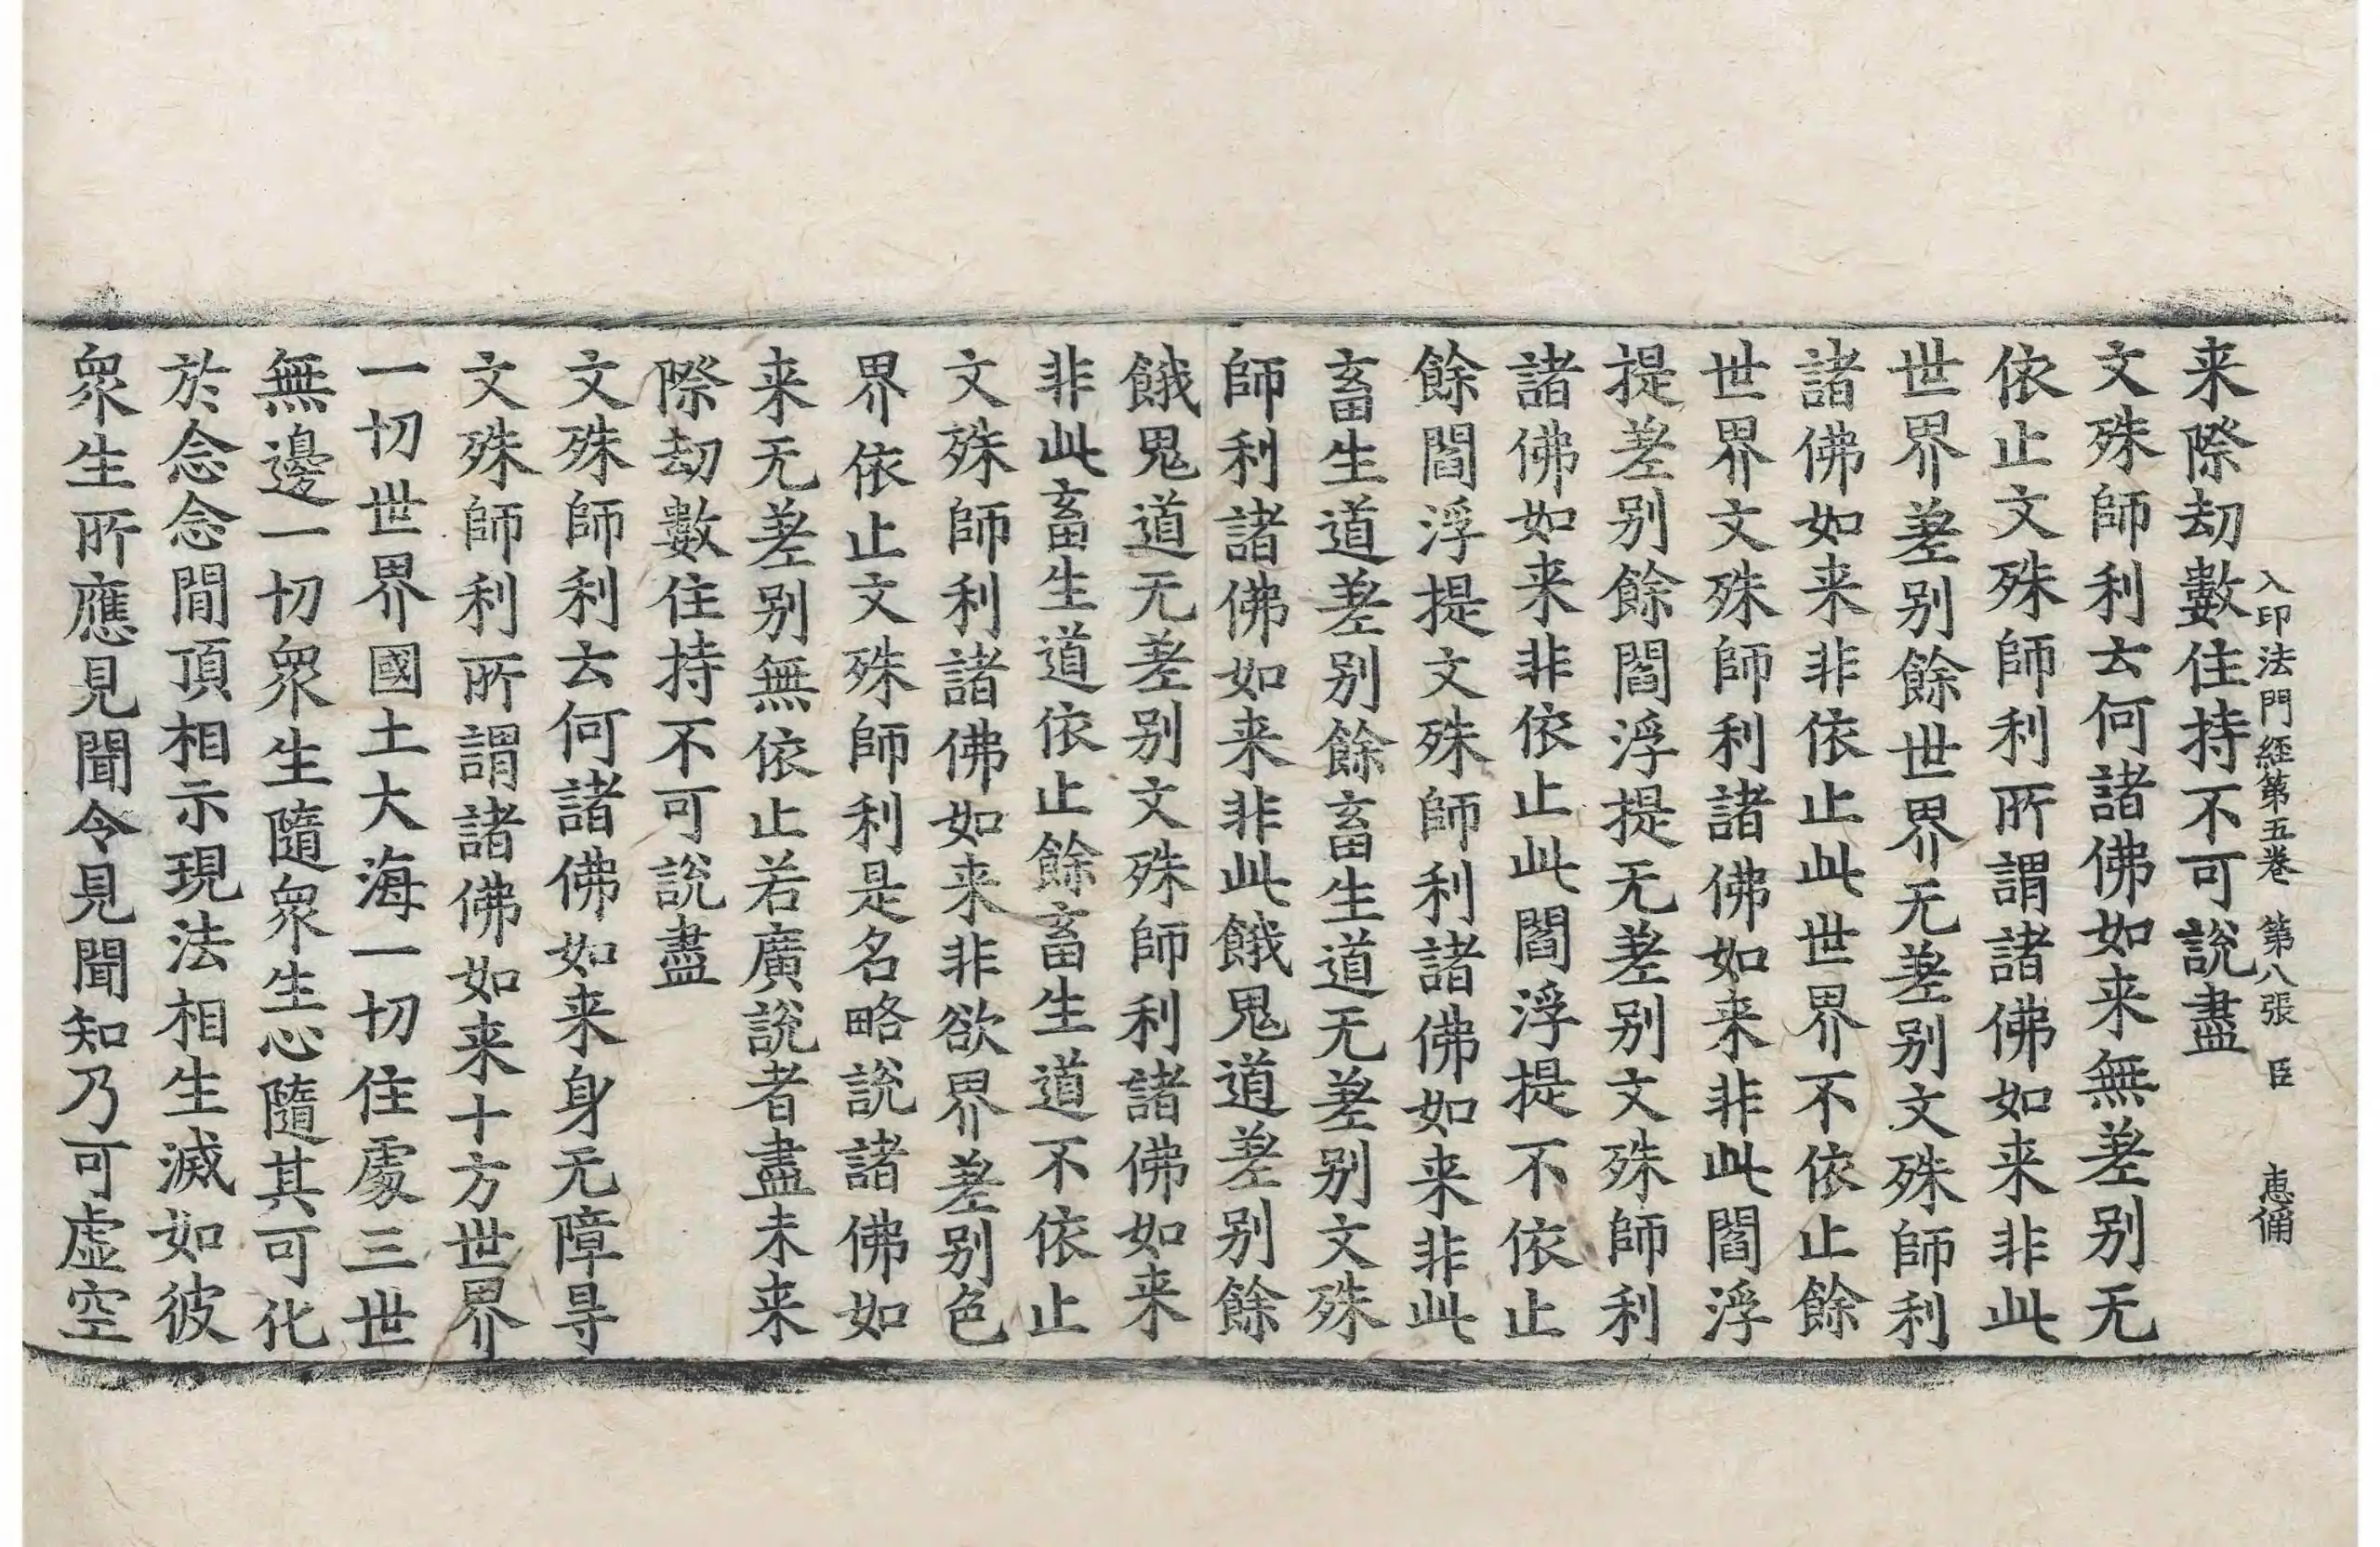 入印法門經第五卷 第八張 臣 惠
来際劫數住持不可說盡
文殊師利云何諸佛如来無差别无
依止文殊師利所謂諸佛如来非此
世界差别餘世界无差别文殊師利
諸佛如来非依止此世界不依止餘
世界文殊師利諸佛如来非此閻浮
提差别餘閻浮提无差别文殊師利
諸佛如来非依止此閻浮提不依止
餘閻浮提文殊師利諸佛如来非此
畜生道差别餘畜生道无差别文殊
師利諸佛如来非此餓鬼道差别餘
餓鬼道无差别文殊師利諸佛如来
非此畜生道依止餘畜生道不依止
文殊師利諸佛如来非欲界差别色
界依止文殊師利是名略說諸佛如
来无差别無依止若廣說者盡未来
際劫數住持不可說盡
文殊師利云何諸佛如来身无障㝵
文殊師利所謂諸佛如来十方世界
一切世界國土大海一切住處三世
無邊一切衆生隨衆生心隨其可化
於念念間頂相示現法相生滅如彼
衆生所應見聞令見聞知乃可虛空